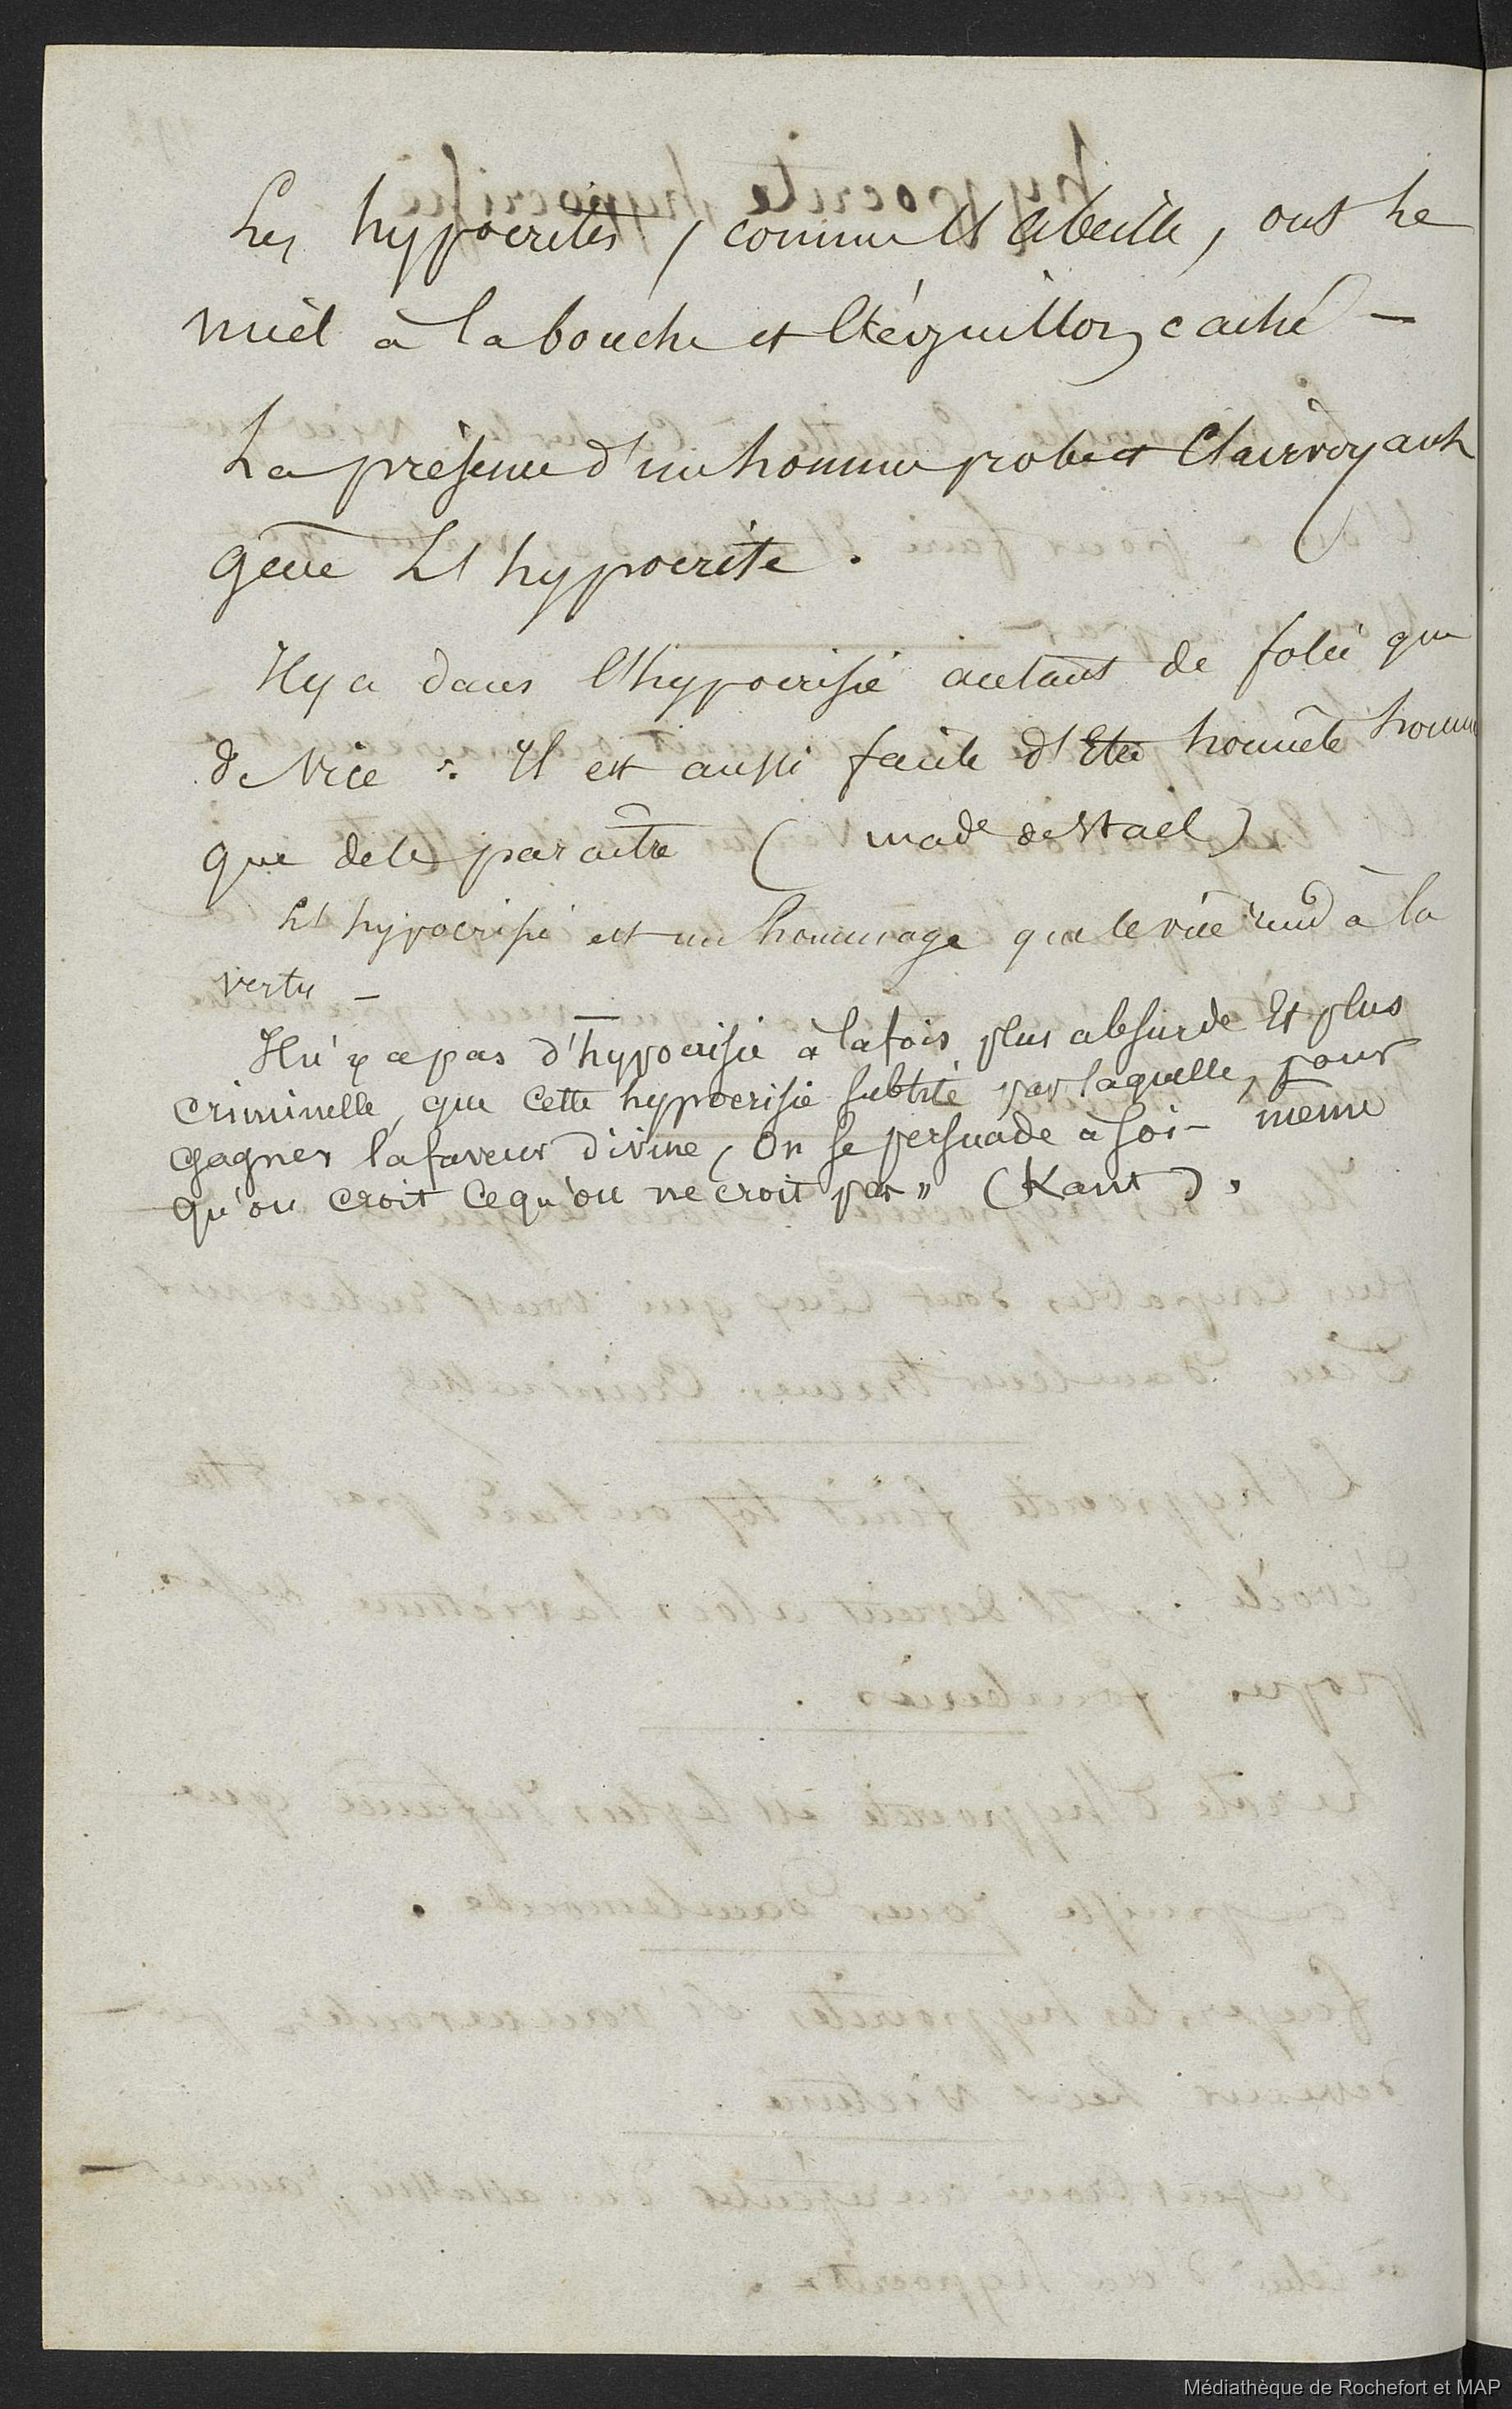 Les hypocrites, comme l'abeille, ont le
miel à la bouche et l'éguillon caché –
La présence d'un homme probe et Clairvoyant
gêne L'hypocrite.
Il y a dans l'hypocrisie autant de folie que
de vice : Il est aussi facile d'Etre honnête homme
que de le paraître (made de Stael)
L'hypocrisie est un hommage que le vice rend à la
vertu –
Il n'y a pas d'hypocrisie à la fois plus absurde Et plus
criminelle, que cette hypocrisie subtile par laquelle, pour
gagner la faveur divine, On se persuade à soi-même
qu'on croit ce qu'on ne croit pas" (Kant).
Médiathèque de Rochefort et MAP